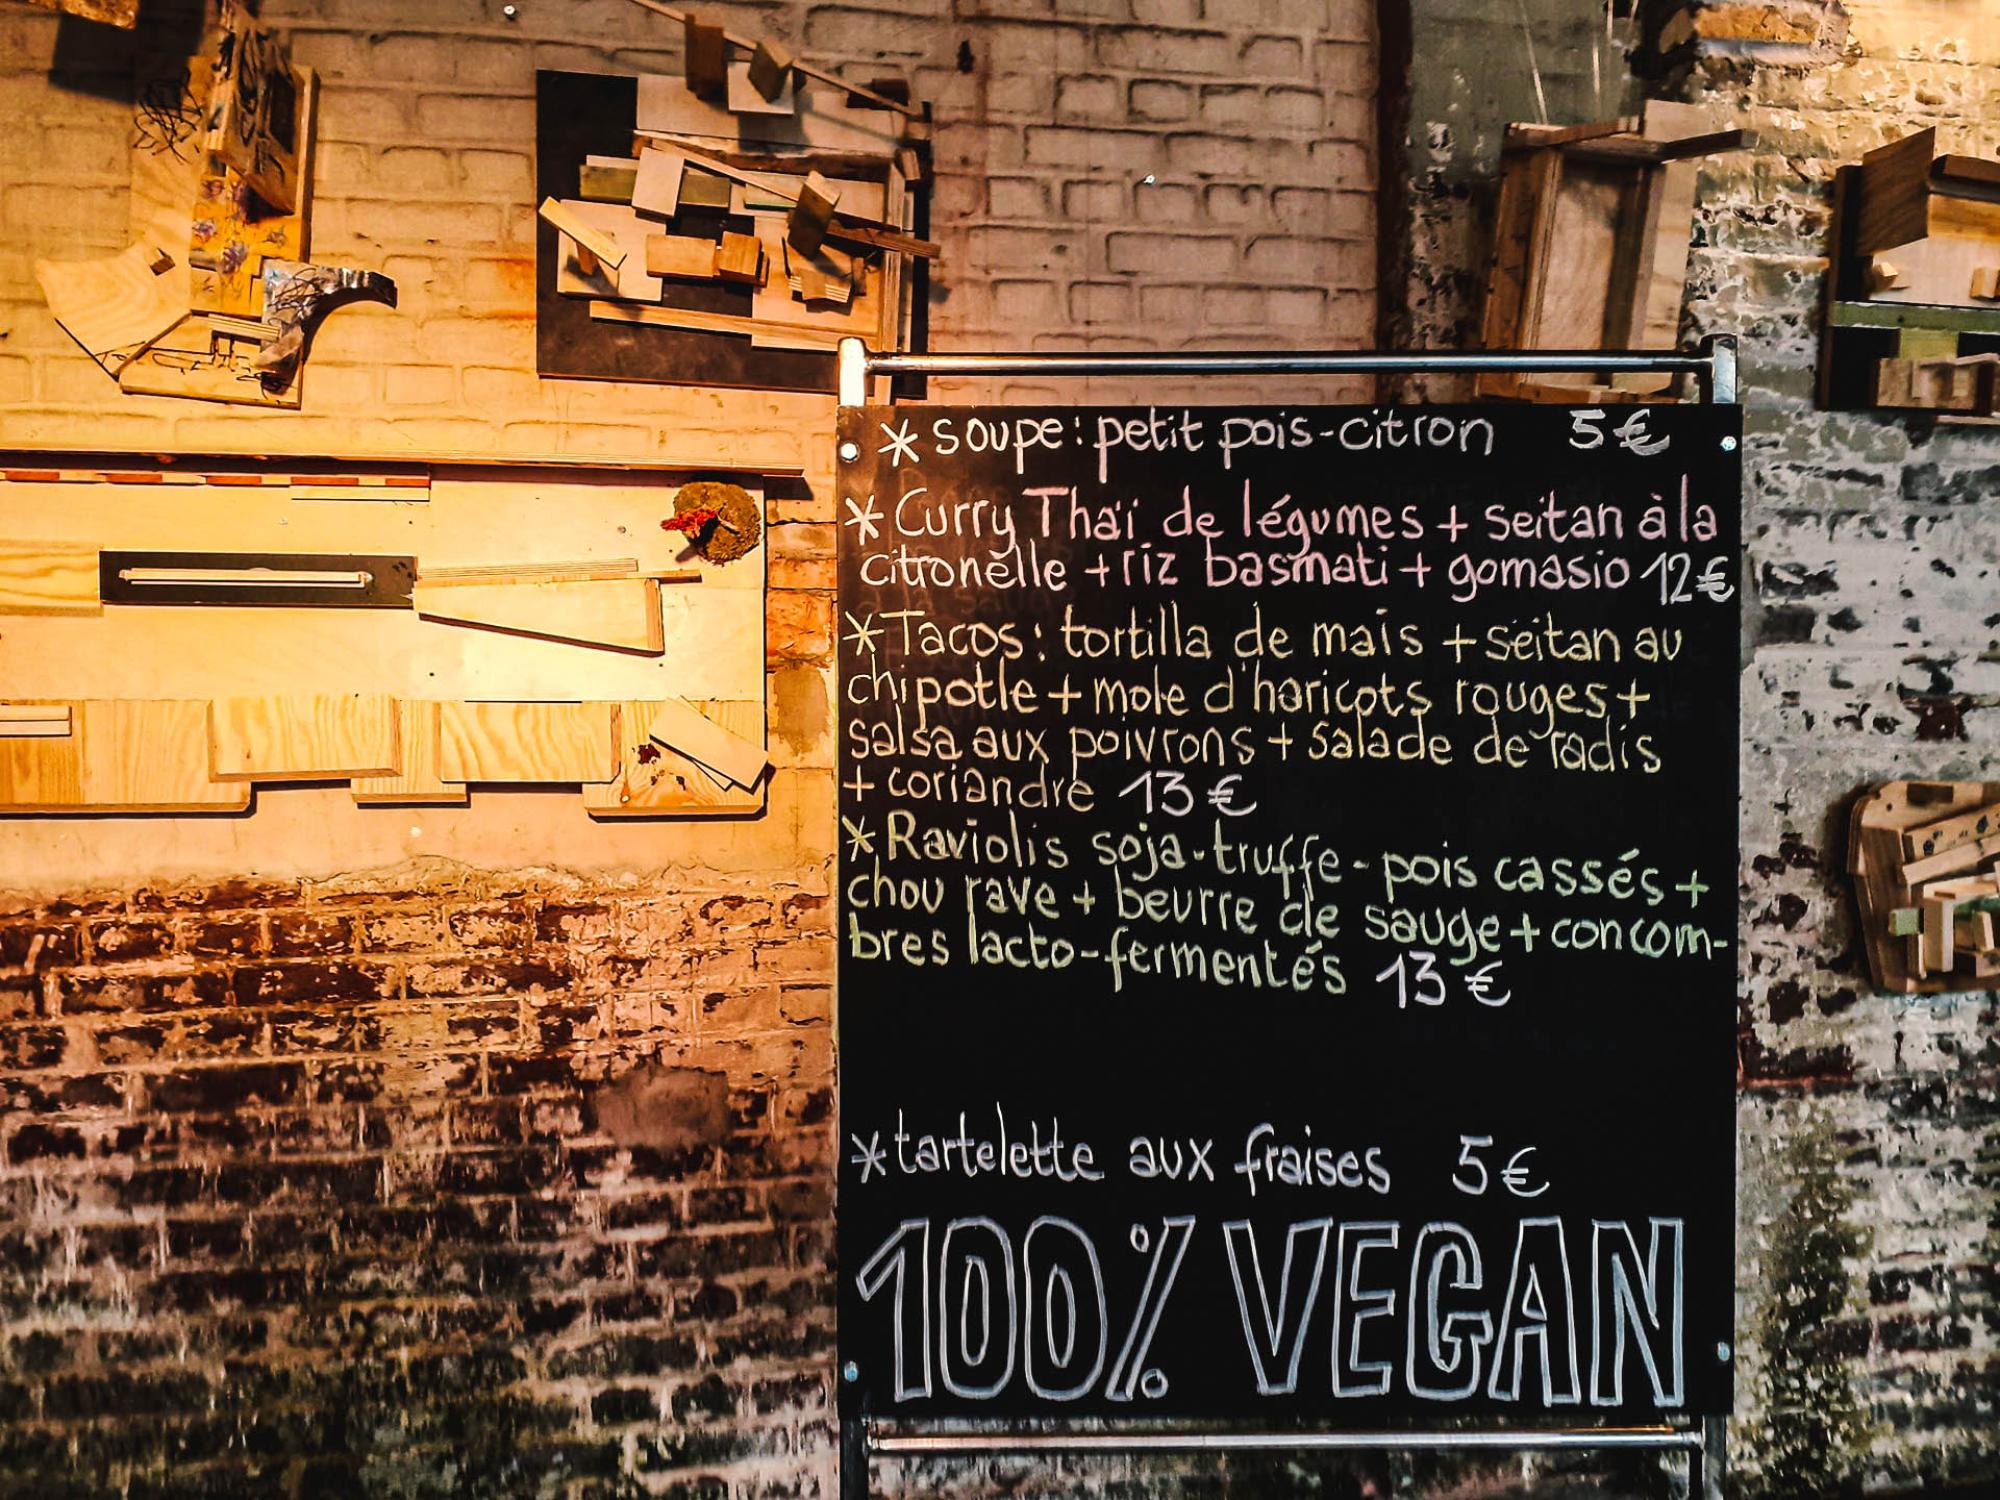 * soupe: petit pois-citron 5€
* Curry Thaï de légumes + seitan à la
citronelle + riz basmati + gomasio 12€
* Tacos: tortilla de mais + seitan au
chipotle + mole d'haricots rouges +
salsa aux poivrons + salade de radis
+ coriandre 13€
* Raviolis soja-truffe-pois cassés +
chou rave + beurre de sauge + concom-
bres lacto-fermentés 13€
* tartelette aux fraises 5€
100% VEGAN